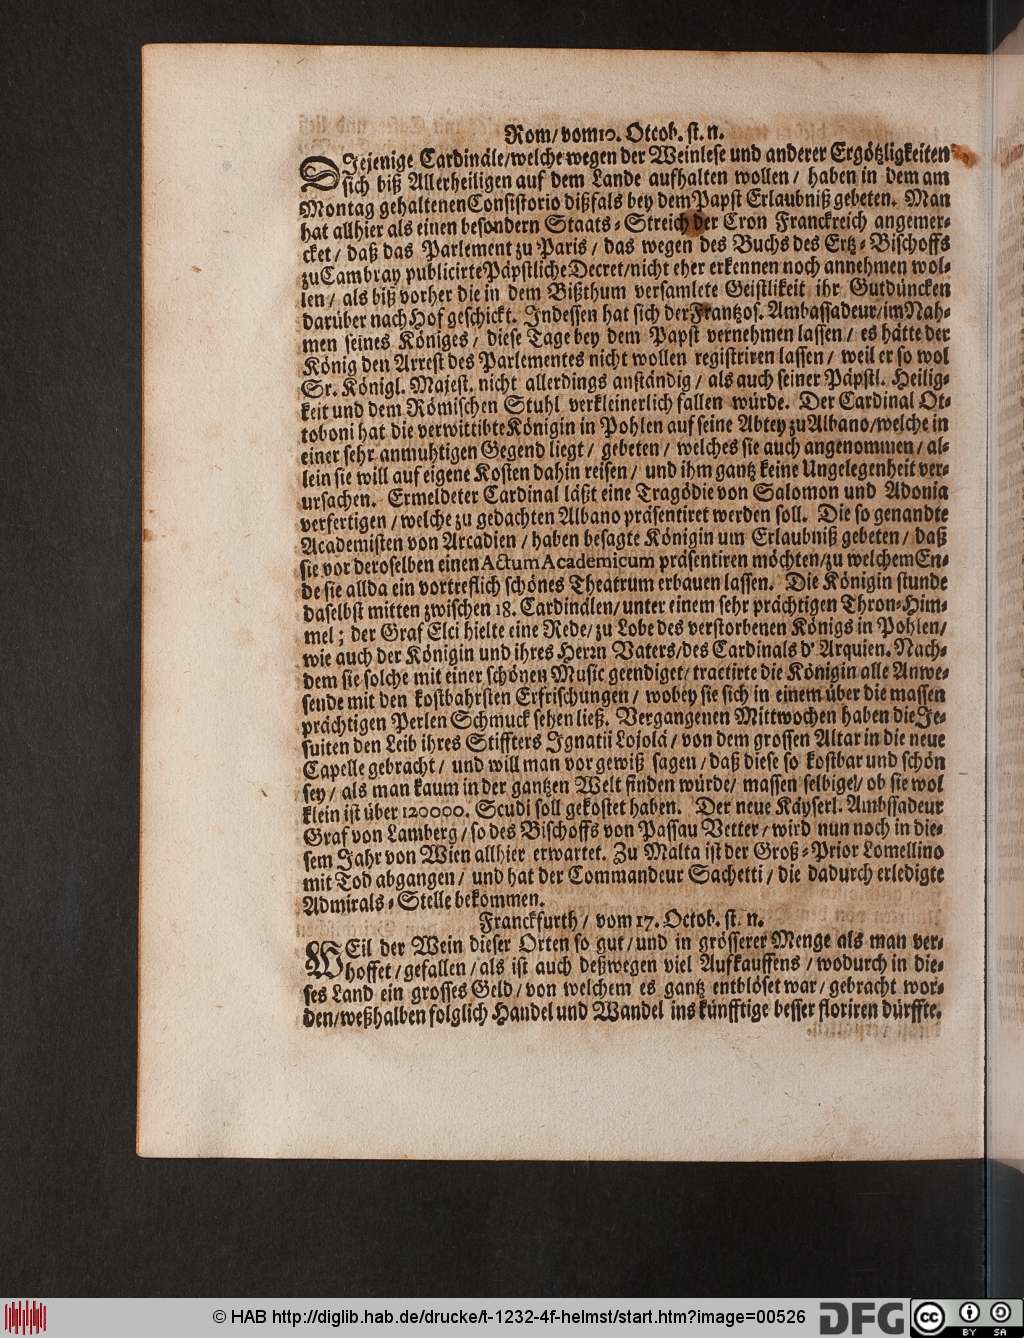 Rom/ vom 10. Otcob. st. n.
DIejenige Cardinäle/welche wegen der Weinlese und anderer Ergötzligkeiten
sich biß Allerheiligen auf dem Lande aufhalten wollen / haben in dem am
Montag gehaltenen Consistorio dißfals bey dem Papst Erlaubniß gebeten. Man
hat allhier als einen besondern Staats-Streich der Cron Franckreich angemer-
cket / daß das Parlement zu Paris / das wegen des Buchs des Ertz-Bischoffs
zu Cambray publicirte Päpstliche Decret/nicht eher erkennen noch annehmen wol-
len / als biß vorher die in dem Bißthum versamlete Geistlikeit ihr Gutdüncken
darüber nach Hof geschickt. Indessen hat sich der Frantzos. Ambassadeur/im Nah-
men seines Königes / diese Tage bey dem Papst vernehmen lassen / es hätte der
König den Arrest des Parlementes nicht wollen registriren lassen / weil er so wol
Sr. Königl. Majest. nicht allerdings anständig / als auch seiner Päpstl. Heilig-
keit und dem Römischen Stuhl verkleinerlich fallen würde. Der Cardinal Ot-
toboni hat die verwittibte Königin in Pohlen auf seine Abtey zu Albano/welche in
einer sehr anmuhtigen Gegend liegt / gebeten / welches sie auch angenommen / al-
lein sie will auf eigene Kosten dahin reisen / und ihm gantz keine Ungelegenheit ver-
ursachen. Ermeldeter Cardinal läßt eine Tragödie von Salomon und Adonia
verfertigen / welche zu gedachten Albano präsentiret werden soll. Die so genandte
Academisten von Arcadien / haben besagte Königin um Erlaubniß gebeten / daß
sie vor deroselben einen Actum Academicum präsentiren möchten/zu welchem En-
de sie allda ein vortreflich schönes Theatrum erbauen lassen. Die Königin stunde
daselbst mitten zwischen 18. Cardinälen/ unter einem sehr prächtigen Thron-Him-
mel ; der Graf Elci hielte eine Rede/ zu Lobe des verstorbenen Königs in Pohlen/
wie auch der Königin und ihres Herrn Vaters/des Cardinals d' Arquien. Nach-
dem sie solche mit einer schönen Music geendiget/ tractirte die Königin alle Anwe-
sende mit den kostbahrsten Erfrischungen / wobey sie sich in einem über die massen
prächtigen Perlen Schmuck sehen ließ. Vergangenen Mittwochen haben die Je-
suiten den Leib ihres Stiffters Ignatii Lojolä / von dem grossen Altar in die neue
Capelle gebracht / und will man vor gewiß sagen / daß diese so kostbar und schön
sey / als man kaum in der gantzen Welt finden würde/ massen selbige/ ob sie wol
klein ist über 120000. Scudi soll gekostet haben. Der neue Käyserl. Ambssadeur
Graf von Lamberg / so des Bischoffs von Passau Vetter / wird nun noch in die-
sem Jahr von Wien allhier erwartet. Zu Malta ist der Groß-Prior Lomellino
mit Tod abgangen / und hat der Commandeur Sachetti / die dadurch erledigte
Admirals-Stelle bekommen.
Franckfurth / vom 17. Octob. st. n.
WEil der Wein dieser Orten so gut / und in grösserer Menge als man ver-
hoffet / gefallen / als ist auch deßwegen viel Aufkauffens / wodurch in die-
ses Land ein grosses Geld / von welchem es gantz entblöset war / gebracht wor-
den/weßhalben folglich Handel und Wandel ins künfftige besser floriren dürffte.
© HAB http://diglib.hab.de/drucke/t-1232-4f-helmst/start.htm?image=00526
DFG
cc BY SA